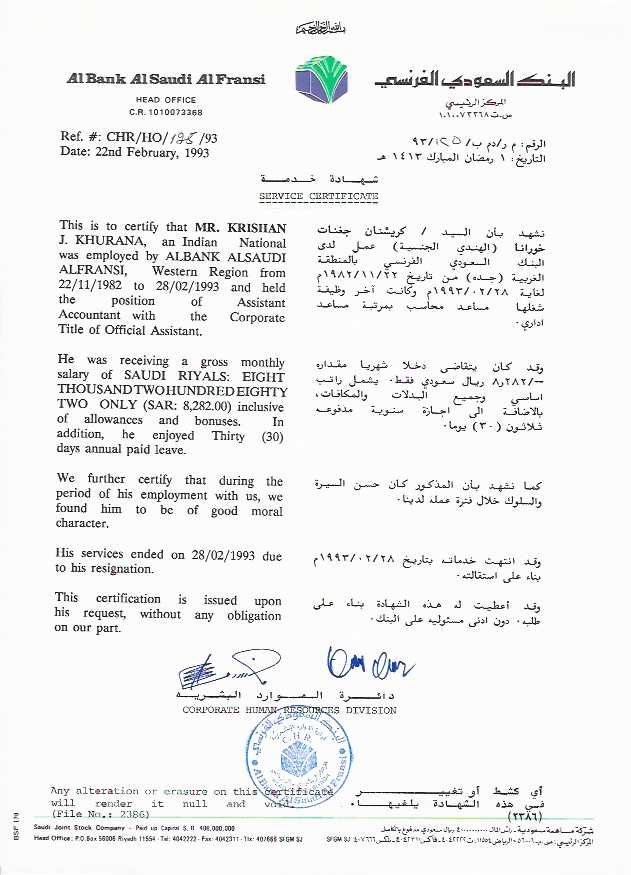 Al Bank Al Saudi Al Fransi
HEAD OFFICE
C.R. 1010073368
البنك السعودي الفرنسي
المركز الرئيسي
س.ت ١٠١٠٠٧٣٣٦٨
Ref. #: CHR/HO/125/93
Date: 22nd February, 1993
الرقم: م ر/دم ب/١٢٥/٩٣
التاريخ: ١ رمضان المبارك ١٤١٣ هـ
شهادة خدمة
SERVICE CERTIFICATE
This is to certify that MR. KRISHAN
J. KHURANA, an Indian National
was employed by ALBANK ALSAUDI
ALFRANSI, Western Region from
22/11/1982 to 28/02/1993 and held
the position of Assistant
Accountant with the Corporate
Title of Official Assistant.
نشهد بأن السيد / كريشنان جنات
خورانا (الهندي الجنسية) عمل لدى
البنك السعودي الفرنسي بالمنطقة
الغربية (جده) من تاريخ ١٩٨٢/١١/٢٢م
لغاية ١٩٩٣/٠٢/٢٨م وكانت آخر وظيفة
شغلها مساعد محاسب بمرتبة مساعد
اداري.
He was receiving a gross monthly
salary of SAUDI RIYALS: EIGHT
THOUSAND TWO HUNDRED EIGHTY
TWO ONLY (SAR: 8,282.00) inclusive
of allowances and bonuses. In
addition, he enjoyed Thirty (30)
days annual paid leave.
وقد كان يتقاضى دخلا شهريا مقداره
-/٨ر٢٨٢ ريال سعودي فقط. يشمل راتب
اساسي وجميع البدلات والمكافات،
بالاضافة الى اجازة سنوية مدفوعه
ثلاثون (٣٠) يوما.
We further certify that during the
period of his employment with us, we
found him to be of good moral
character.
كما نشهد بأن المذكور كان حسن السيرة
والسلوك خلال فترة عمله لدينا.
His services ended on 28/02/1993 due
to his resignation.
وقد انتهت خدماته بتاريخ ١٩٩٣/٠٢/٢٨م
بناء على استقالته.
This certification is issued upon
his request, without any obligation
on our part.
وقد أعطيت له هذه الشهادة بناء على
طلبه. دون ادنى مسئوليه على البنك.
دائرة الموارد البشريه
CORPORATE HUMAN RESOURCES DIVISION
البنك السعودي الفرنسي
C.H.R.
Al Bank Al Saudi Al Fransi
Any alteration or erasure on this certificate
will render it null and void.
(File No.: 2386)
أي كشط أو تغيير
في هذه الشهادة يلغيها.
(٢٣٨٦)
BSF 1/N
Saudi Joint Stock Company - Paid up Capital S. R. 400,000,000
Head Office: P.O.Box 56006 Riyadh 11554 - Tel: 4042222 - Fax: 4042311 - Tlx: 407666 SFGM SJ
شركة مساهمة سعودية - رأس المال ٤٠٠٠٠٠٠٠٠ ريال سعودي مدفوع بالكامل
المركز الرئيسي: ص.ب ٥٦٠٠٦ الرياض ١١٥٥٤ - ت: ٤٠٤٢٢٢٢ - فاكس: ٤٠٤٢٣١١ - تلكس: ٤٠٧٦٦٦ SFGM SJ